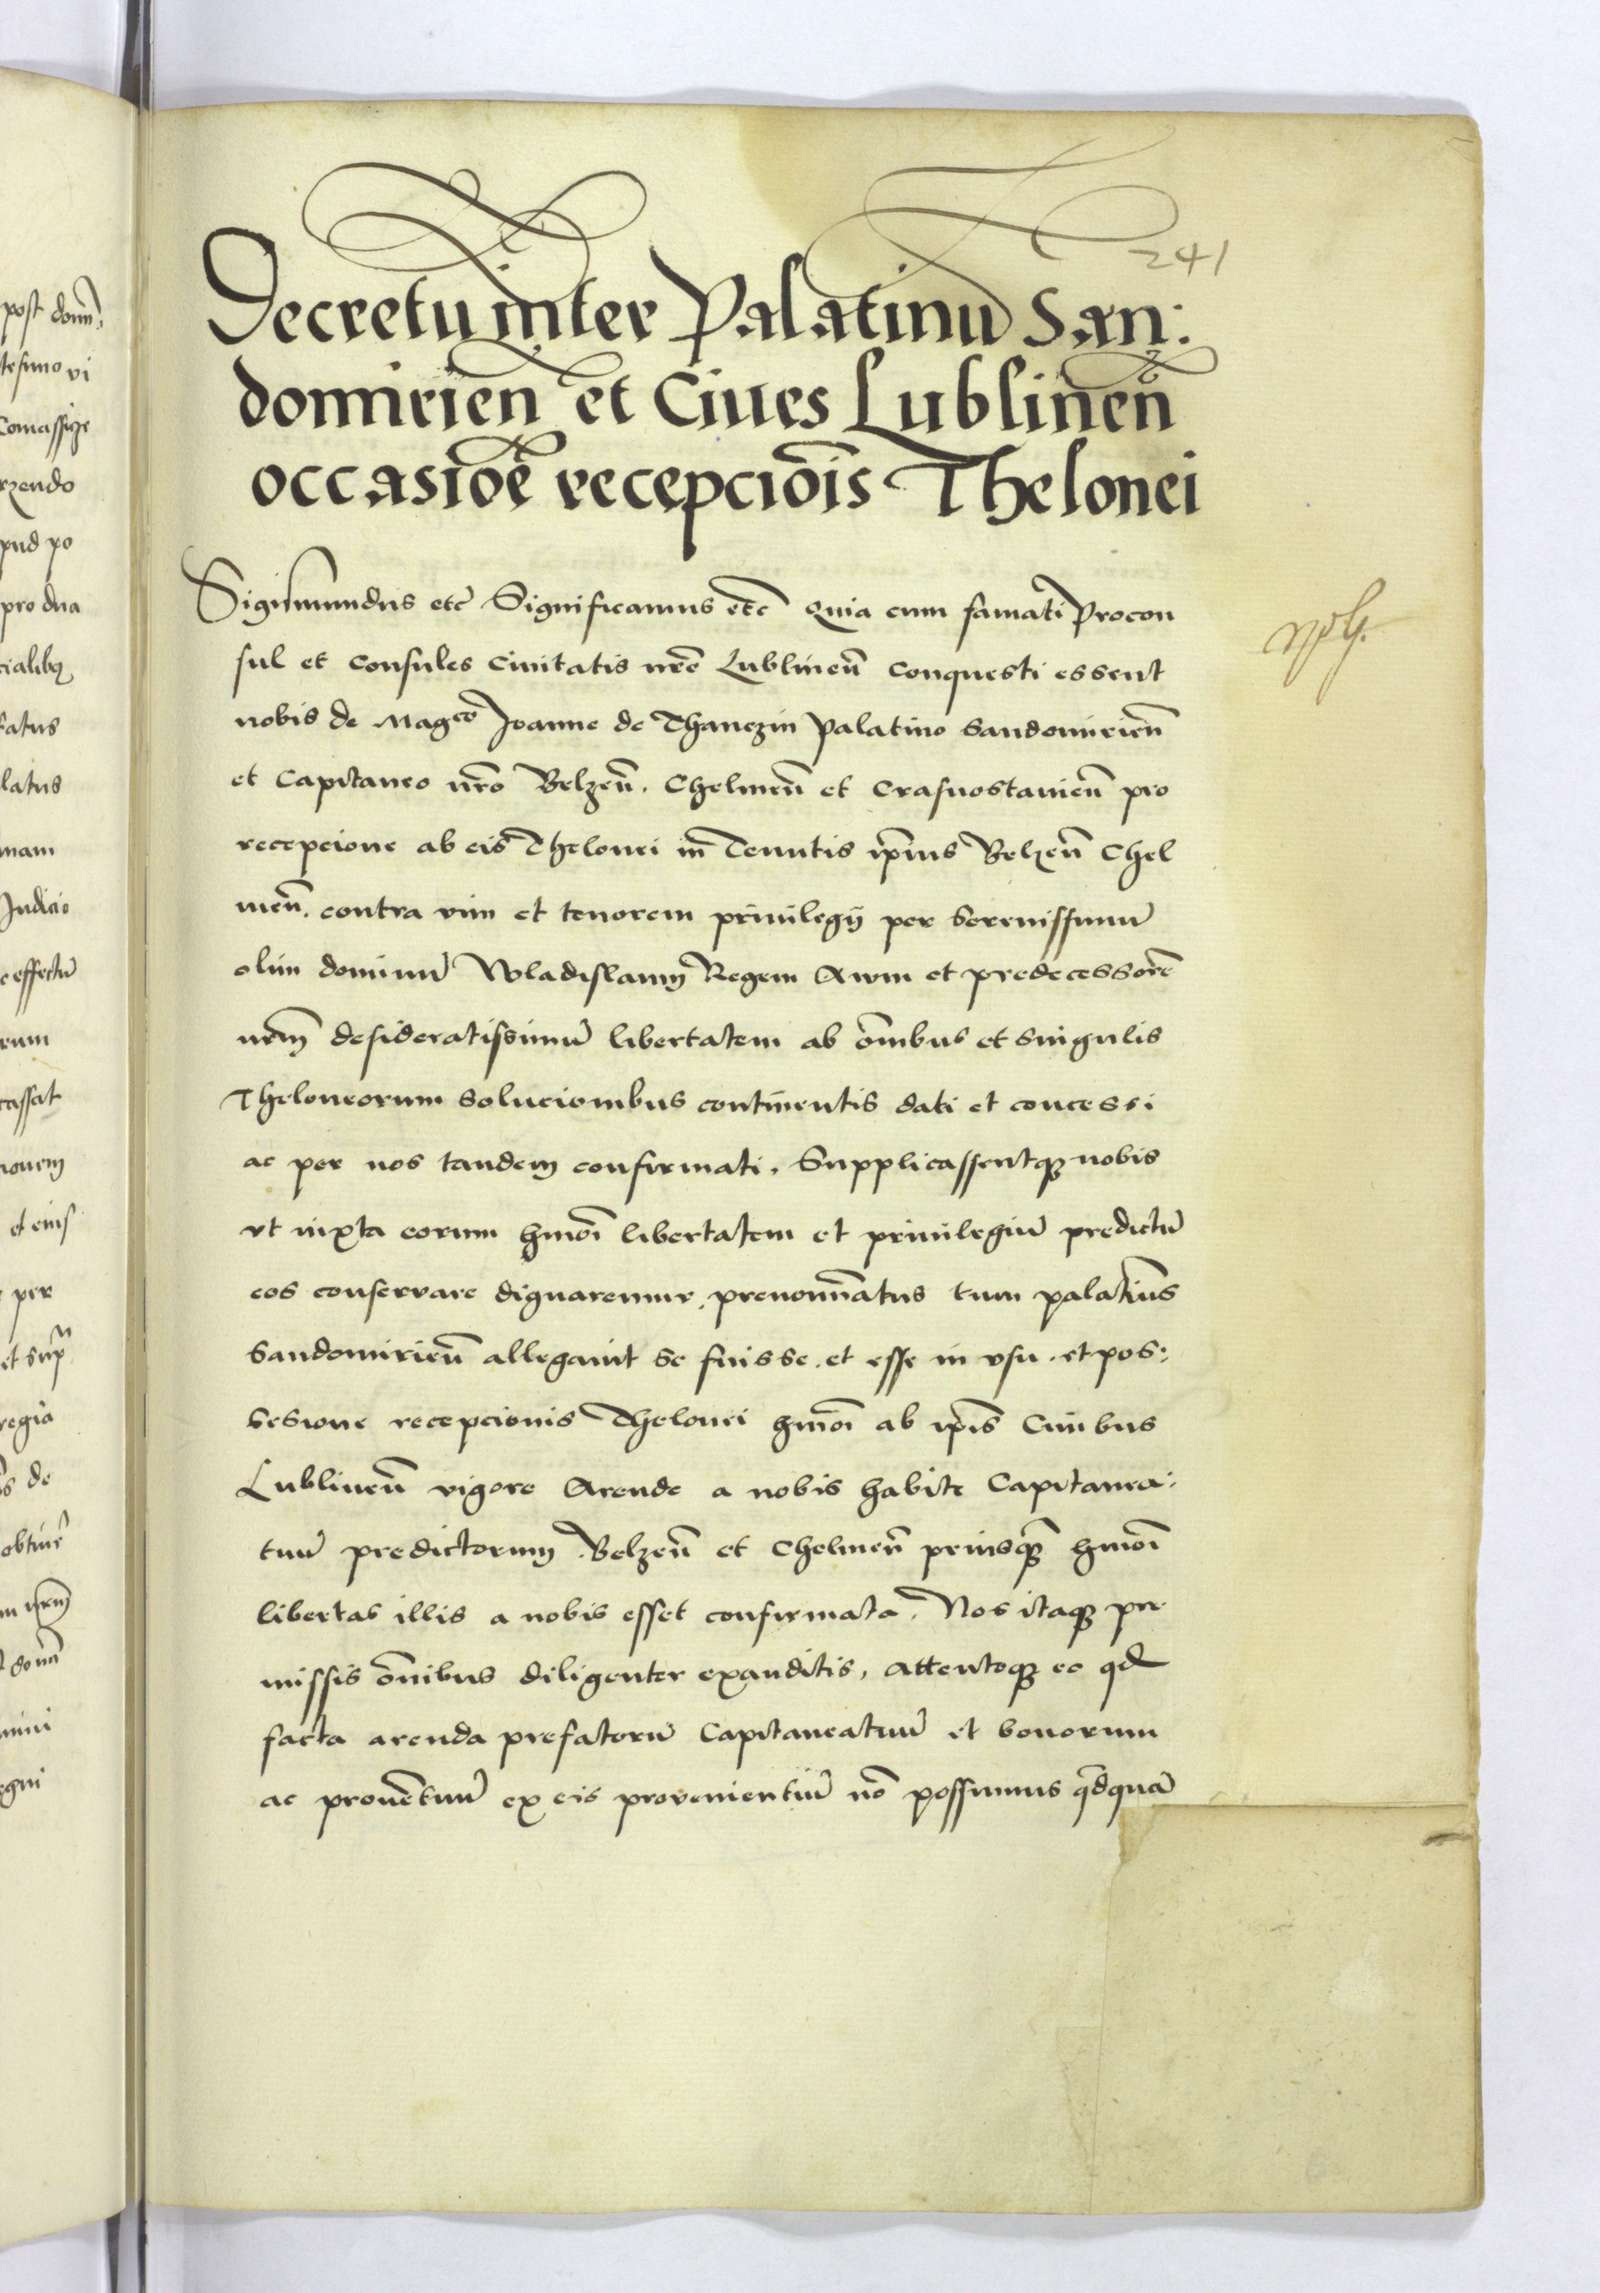 241
Decretu inter Palatinu San:
domirien et Ciues Lublinen
occasioe recepciois Thelonei
Sigismundus etc Significamus etc Quia cum famati Procon
sul et Consules Ciuitatis nre Lublinen conquesti essent
nobis de Magco Joanne de Thanczin Palatino Sandomirien
et Capitaneo nro Belzen. Chelmen et Crasnostauien pro
recepcione ab eis Thelonei in Tenutis ipius Belzen Chel
men. contra vim et tenorem priuilegij per Serenissimu
olim dominu Wladislaum Regem Auum et predecessore
nrm desideratissimu libertatem ab omibus et singulis
Theloneorum solucionibus continentis dati et concessi
ac per nos tandem confirmati. Supplicassentq nobis
vt iuxta eorum hmoi libertatem et priuilegiu predictu
eos conseruare dignaremur. prenominatus tum palatinus
Sandomirien allegauit se fuisse. et esse in vsu. et pos:
sesione recepcionis Thelonei hmoi ab ipis Ciuibus
Lublinen vigore Arende a nobis habite Capitanea:
tuu predictorum. Belzen et Chelmen priusq hmoi
libertas illis a nobis esset confirmata. Nos itaq pre
missis omibus diligenter exauditis, attentoq eo qd
facta arenda prefatoru Capitaneatuu et bonorum
ac prouentuu ex eis prouenientiu no possumus qdqua
post
pud po
latus
Judicio
effectu
et eius
per
regia
de